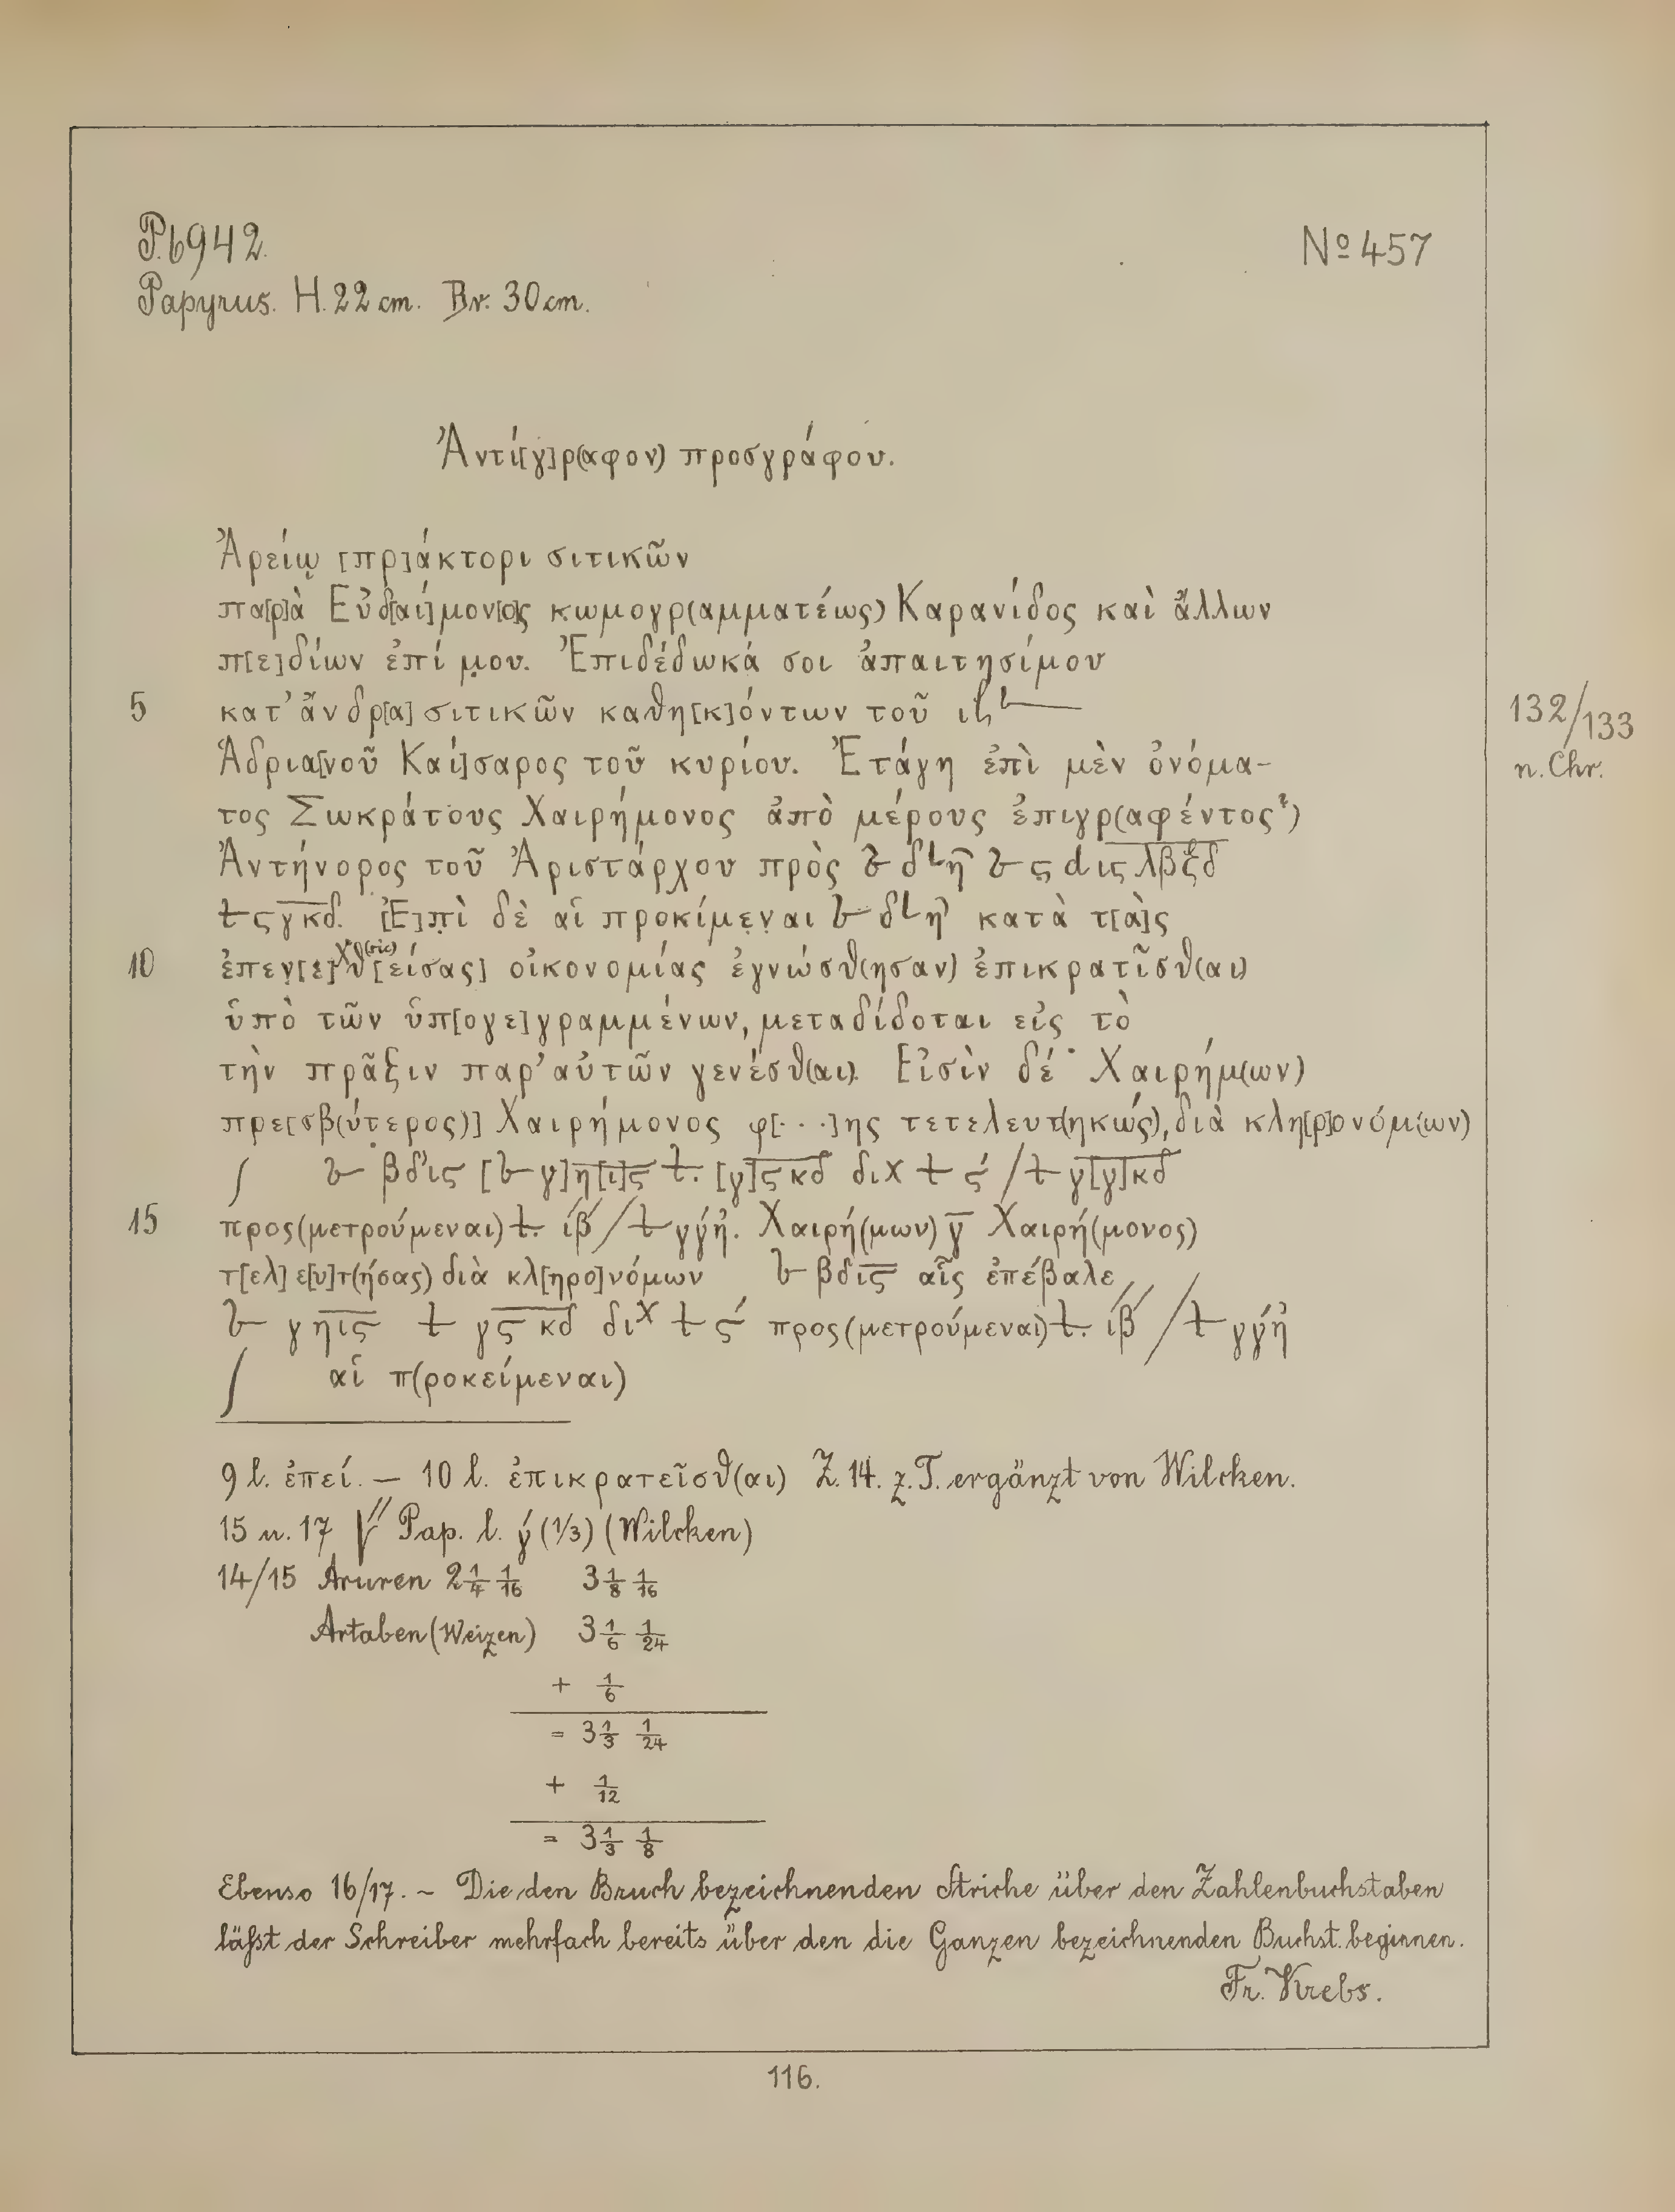 P. 6942.
Nº 457
Papyrus. H. 22 cm. Br. 30 cm.
Ἀντί[γ]ρ(αφον) προσγράφου.
Ἀρείῳ [πρ]άκτορι σιτικῶν
πα[ρ]ὰ Εὐδ[αί]μον[ο]ς κωμογρ(αμματέως) Καρανίδος καὶ ἄλλων
π[ε]δίων ἐπί μου. Ἐπιδέδωκά σοι ἀπαιτησίμου
5 κατ’ ἄνδρ[α] σιτικῶν καθη[κ]όντων τοῦ
132/133
n. Chr.
Ἁδρια[νοῦ Καί]σαρος τοῦ κυρίου. Ἐτάγη ἐπὶ μὲν ὀνόμα-
τος Σωκράτους Χαιρήμονος ἀπὸ μέρους ἐπιγρ(αφέντος?)
Ἀντήνορος τοῦ Ἀριστάρχου πρὸς
[Ἐ]πὶ δὲ αἱ προκίμεναι κατὰ τ[ὰ]ς
10 ἐπεν[ε]χθ(sic)[είσας] οἰκονομίας ἐγνώσθ(ησαν) ἐπικρατῖσθ(αι)
ὑπὸ τῶν ὑπ[ογε]γραμμένων, μεταδίδοται εἰς τὸ
τὴν πρᾶξιν παρ’ αὐτῶν γενέσθ(αι). Εἰσὶν δέ· Χαιρήμ(ων)
πρε[σβ(ύτερος)] Χαιρήμονος φ[...]ης τετελευτ(ηκώς), διὰ κλη[ρ]ονόμ(ων)
15 προς(μετρούμεναι) ιβ / γγή. Χαιρή(μων) γ̅ Χαιρή(μονος)
τ[ελ]ε[υ]τ(ήσας) διὰ κλ[ηρο]νόμων βδις αἷς ἐπέβαλε
προς(μετρούμεναι)
αἱ π(ροκείμεναι)
9 l. ἐπεί. — 10 l. ἐπικρατεῖσθ(αι) Z. 14. z. T. ergänzt von Wilcken.
15 u. 17 Pap. l. γ́ (1/3) (Wilcken)
14/15 Aruren 2 1/4 1/16 3 1/8 1/16
Artaben (Weizen) 3 1/6 1/24
+ 1/6
= 3 1/3 1/24
+ 1/12
= 3 1/3 1/8
Ebenso 16/17. – Die den Bruch bezeichnenden Striche über den Zahlenbuchstaben
läßt der Schreiber mehrfach bereits über den die Ganzen bezeichnenden Buchst. beginnen.
Fr. Krebs.
116.